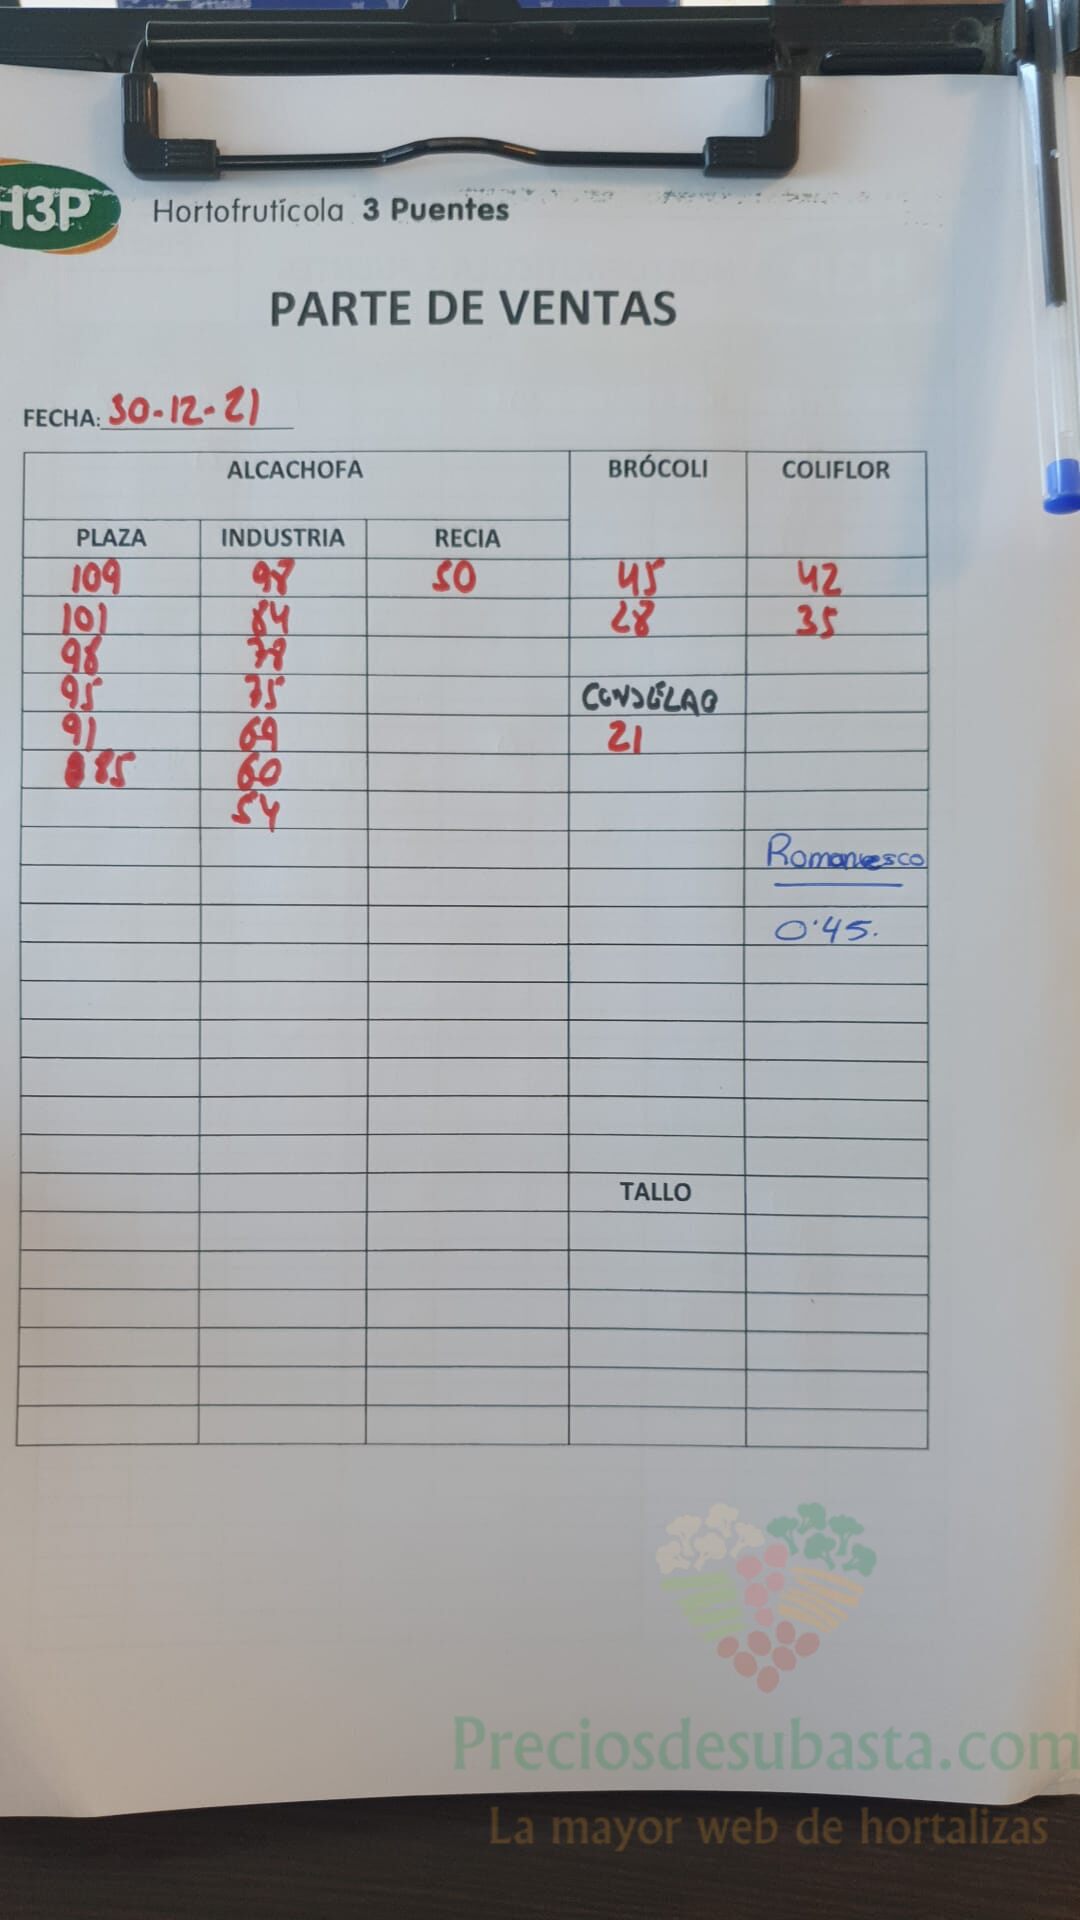 H3P Hortofrutícola 3 Puentes
PARTE DE VENTAS
FECHA: 30-12-21
ALCACHOFA BRÓCOLI COLIFLOR
PLAZA INDUSTRIA RECIA
109 98 50 45 42
101 84 28 35
98 78
95 75 CONGELAO
91 69 21
85 60
54
Romanesco
0'45.
TALLO
Preciosdesubasta.com
La mayor web de hortalizas